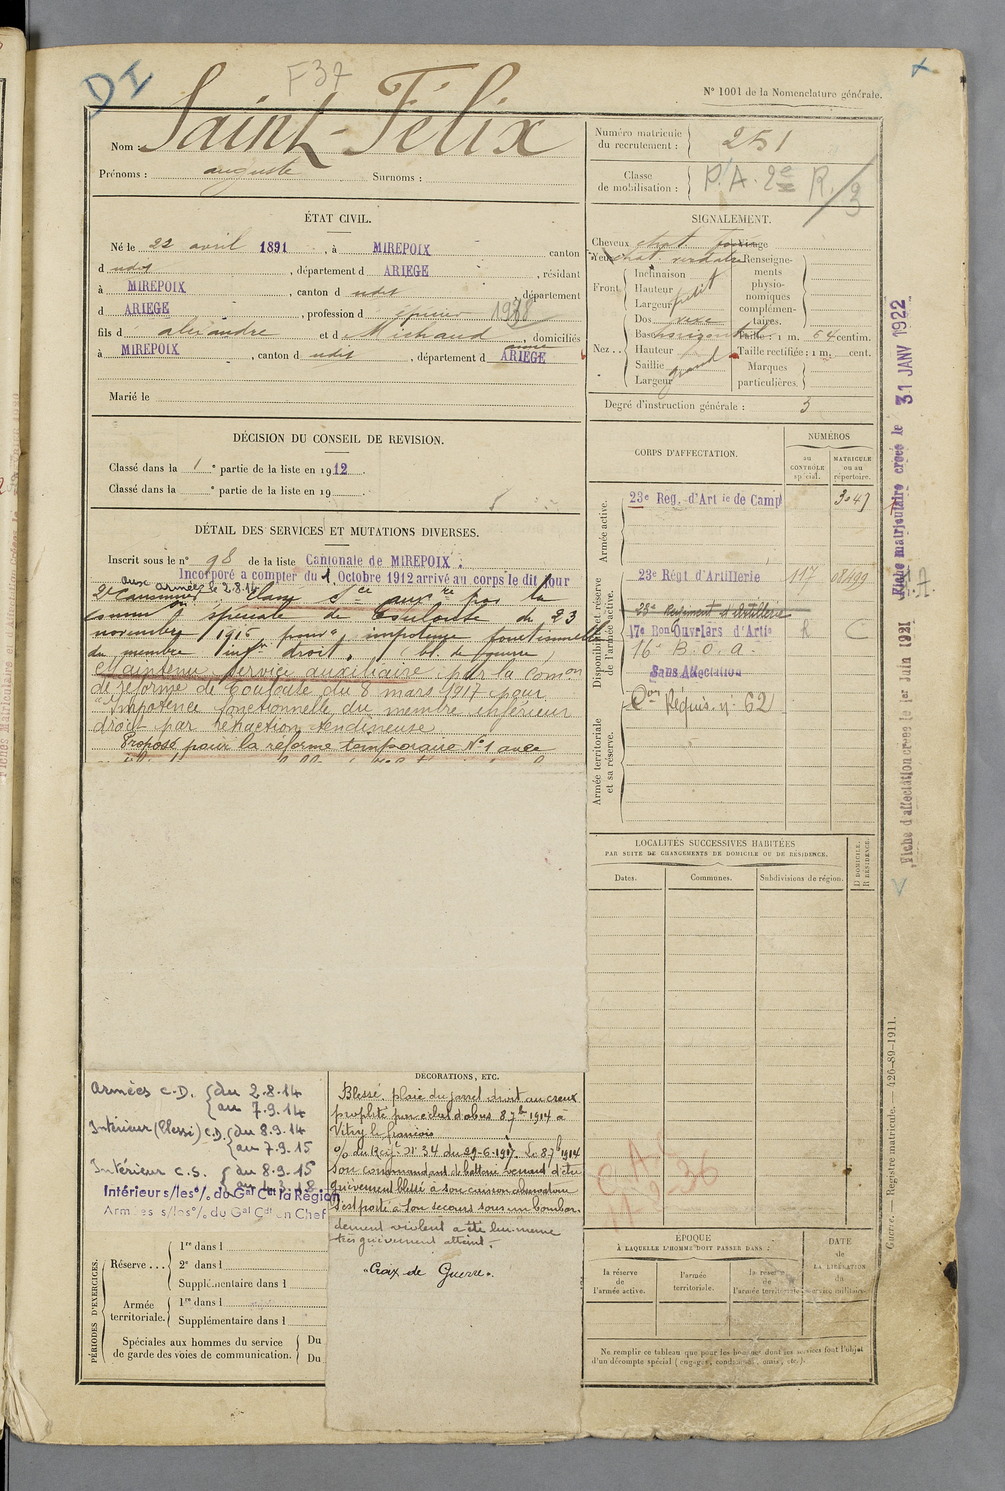 DI
F37
N° 1001 de la Nomenclature générale.
Nom : Saint-Félix
Prénoms : auguste Surnoms :
Numéro matricule du recrutement : 251
Classe de mobilisation : P.A. 2e R/3
ÉTAT CIVIL.
Né le 22 avril 1891, à MIREPOIX canton
d udit, département d ARIEGE, résidant
à MIREPOIX, canton d udit, département
d ARIEGE, profession d épicier 1938
fils d alexandre et d Michaud anne, domiciliés
à MIREPOIX, canton d udit, département d ARIEGE
Marié le
SIGNALEMENT.
Cheveux chat.
Yeux chat. verdatre
Front Inclinaison
Hauteur petit
Largeur
Nez Dos vexe
Base horizontale
Hauteur
Saillie grand
Largeur
Renseignements physionomiques complémentaires.
Taille : 1 m. 64 centim.
Taille rectifiée : 1 m. cent.
Marques particulières.
Degré d'instruction générale : 3
DÉCISION DU CONSEIL DE REVISION.
Classé dans la 1e partie de la liste en 1912
Classé dans la e partie de la liste en 19
DÉTAIL DES SERVICES ET MUTATIONS DIVERSES.
Inscrit sous le n° 98 de la liste Cantonale de MIREPOIX.
Incorporé a compter du 1 Octobre 1912 arrivé au corps le dit jour
aux armées le 2.8.14
2e Canonnier Classé Sce auxre par la
Common spéciale de Toulouse du 23
novembre 1915 pour impotence fonctionnelle
du membre infr droit, (bl. de guerre)
Maintenu service auxiliaire par la comon
de réforme de Toulouse du 8 mars 1917 pour
Impotence fonctionnelle du membre inférieur
droit par rétraction tendineuse
Proposé pour la réforme temporaire N°1 avec
CORPS D'AFFECTATION.
NUMÉROS
au CONTRÔLE spécial.
MATRICULE ou au répertoire.
Armée active.
23e Reg. d'Artie de Camp 3047
Disponibilité et réserve de l'armée active.
23e Régt d'Artillerie 117 08499
23e Regiment d'Artillerie
17e Bon Ouvriers d'Artie R C
16e B.O.A.
Sans Affectation
Armée territoriale et sa réserve.
Con Réquis. n° 62
LOCALITÉS SUCCESSIVES HABITÉES
PAR SUITE DE CHANGEMENTS DE DOMICILE OU DE RÉSIDENCE.
Dates. Communes. Subdivisions de région. D. DOMICILE. R. RÉSIDENCE.
Armées C.D. du 2.8.14
au 7.9.14
Intérieur (Blessé) C.D. du 8.9.14
au 7.9.15
Intérieur C.S. du 8.9.15
au 4.3.18
Intérieur s/les o/ du Gal Ct la Région
Armées s/les o/ du Gal Cdt en Chef
DÉCORATIONS, ETC.
Blessé, plaie du jarret droit au creux
poplité par eclat d'obus 8 7bre 1914 à
Vitry le françois
o/ du Rgt n° 34 du 29-6-1917. Le 8 7b 1914
son commandant de batterie venant d'être
grièvement blessé à son caisson observatoire
s'est porté à son secours sous un bombar-
dement violent a été lui-même
très grièvement atteint.
"Croix de Guerre".
C.A.
17-2-36
PÉRIODES D'EXERCICES.
Réserve... 1re dans l
2e dans l
Supplémentaire dans l
Armée territoriale. 1re dans l
Supplémentaire dans l
Spéciales aux hommes du service de garde des voies de communication. Du
Du
ÉPOQUE
À LAQUELLE L'HOMME DOIT PASSER DANS :
la réserve de l'armée active.
l'armée territoriale.
la réserve de l'armée territoriale
DATE de LA LIBÉRATION du service militaire
Ne remplir ce tableau que pour les hommes dont les services font l'objet
d'un décompte spécial (engagés, condamnés, omis, etc.).
Fiche matriculaire créée le 31 JANV 1922
Fiche d'affectation créée le 1er Juin 1921
Guerre. — Registre matricule. — 426-89-1911.